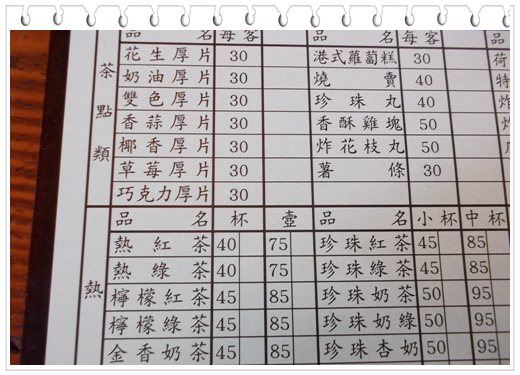 茶點類
品名 每客 品名 每客 品
花生厚片 30 港式蘿蔔糕 30 荷
奶油厚片 30 燒賣 40 特
雙色厚片 30 珍珠丸 40
香蒜厚片 30 香酥雞塊 50
椰香厚片 30 炸花枝丸 50
草莓厚片 30 薯條 30
巧克力厚片 30
熱
品名 杯 壺 品名 小杯 中杯
熱紅茶 40 75 珍珠紅茶 45 85
熱綠茶 40 75 珍珠綠茶 45 85
檸檬紅茶 45 85 珍珠奶茶 50 95
檸檬綠茶 45 85 珍珠奶綠 50 95
金香奶茶 45 85 珍珠杏奶 50 95